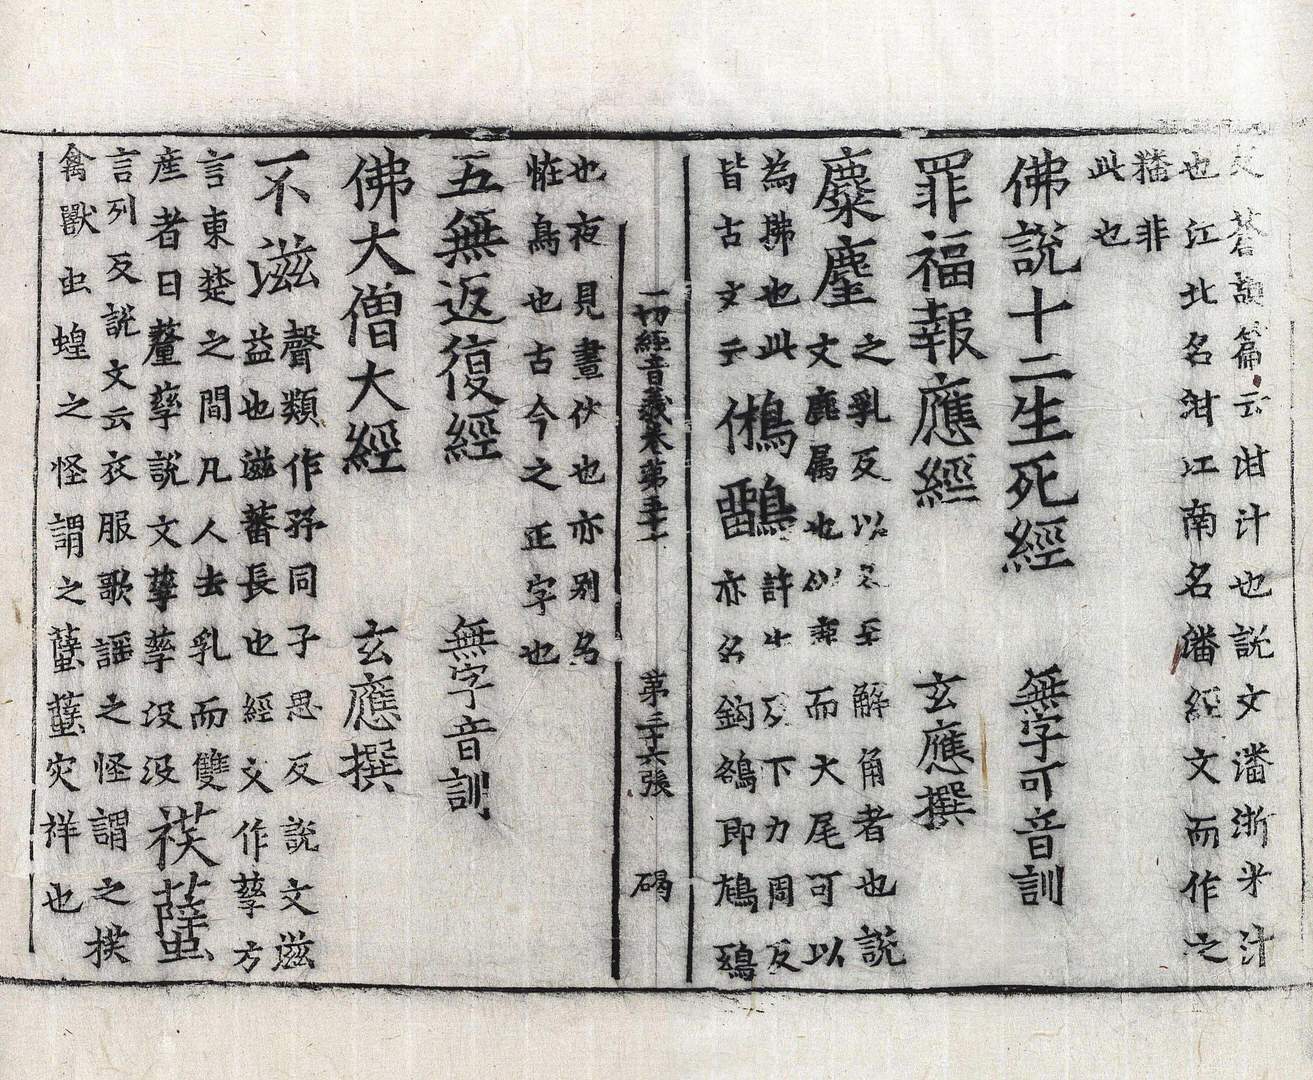 反蒼頡篇云泔汁也説文潘淅米汁
也江北名泔江南名潘經文而作之
𥼶非
此也
佛説十二生死經 無字可音訓
罪福報應經 玄應撰
麋麈 之乳反以冬至解角者也説
文鹿属也似鹿而大尾可以
為拂也此 鵂鶹 許牛反下力周反
皆古文云 亦名鉤鵅即鴟鴞
一切經音義卷第五十 第三十六張 碣
也夜見晝伏也亦別名
恠鳥也古今之正字也
五無返復經 無字音訓
佛大僧大經 玄應撰
不滋 聲類作孖同子思反説文滋
益也滋蕃長也經文作孳方
言東楚之間凡人去乳而雙
産者曰釐孳説文孳孳汲汲 䄏蠥
言列反説文云衣服歌謡之怪謂之䄏
禽獸虫蝗之怪謂之蠥蠥灾祥也